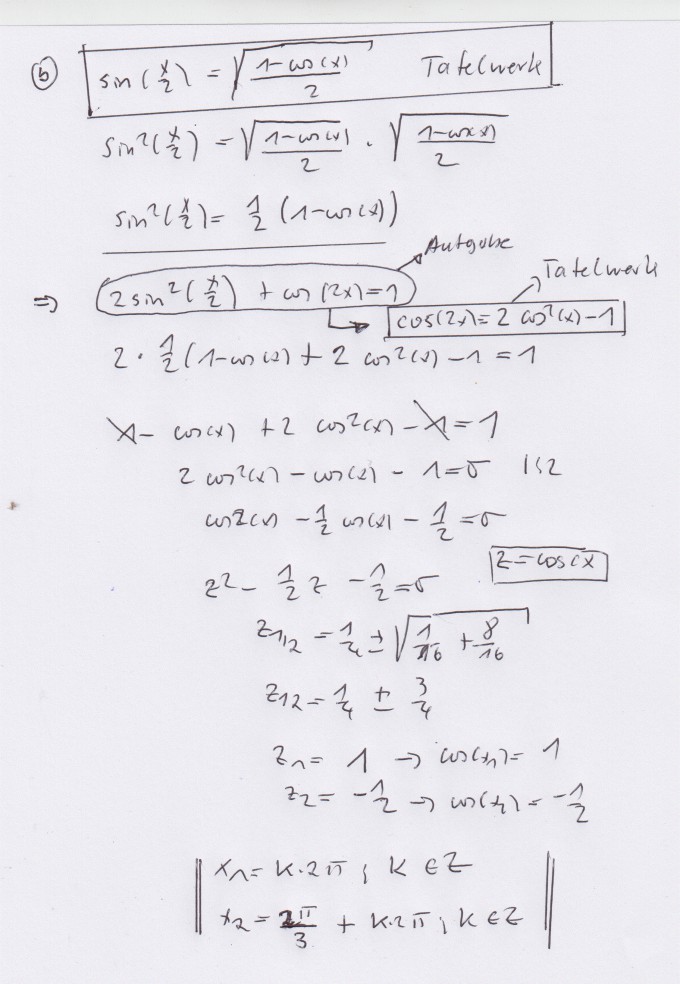 b) sin(x/2) = √((1-cos(x))/2) Tafelwerk
sin²(x/2) = √((1-cos(x))/2) · √((1-cos(x))/2)
sin²(x/2) = 1/2 (1-cos(x))
Aufgabe
Tafelwerk
⇒ 2 sin²(x/2) + cos(2x) = 1
cos(2x) = 2 cos²(x) - 1
2 · 1/2 (1-cos(x)) + 2 cos²(x) - 1 = 1
1 - cos(x) + 2 cos²(x) - 1 = 1
2 cos²(x) - cos(x) - 1 = 0 |:2
cos²(x) - 1/2 cos(x) - 1/2 = 0
z = cos(x
z² - 1/2 z - 1/2 = 0
z1,2 = 1/4 ± √(1/16 + 8/16)
z12 = 1/4 ± 3/4
z1 = 1 → cos(x1) = 1
z2 = -1/2 → cos(x2) = -1/2
x1 = k·2π ; k ∈ Z
x2 = 2π/3 + k·2π ; k ∈ Z